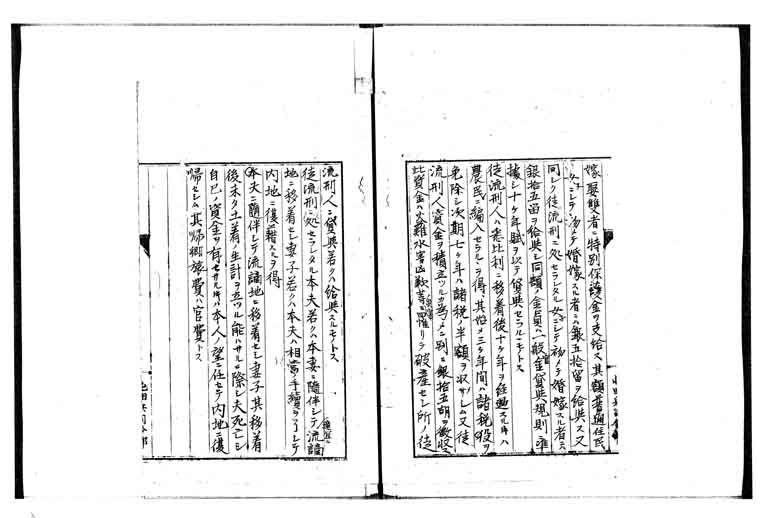 嫁娶雙者ニ特別保護金ヲ支給ス其額普通住民
女ニシテ初メテ婚嫁スル者ニハ銀五拾留ヲ給典ス又
同シク徒流刑ニ処セラレタル女ニシテ初メテ婚嫁スル者ニハ
銀拾五留ヲ給典シ同額ノ金員ハ一般金貸與規則ニ準
據シ十ケ年賦ヲ以テ貸典セラルヽモノトス
徒流刑人ハ悉比利ニ移着後十ケ年ヲ経過スル時ハ
農民ニ編入セラルヽヲ得其始メ三ケ年間ハ諸税役ヲ
免除シ次期七ケ年ハ諸税ノ半額ヲ収サレム又徒
流刑人資金ヲ積立ツルカ為メ別ニ銀拾五胡ヲ徴収ス
此資金ハ火難水害凶歉等ニ罹リテ破産セシ所ノ徒
流刑人ニ貸與若クハ給與スルモノトス
徒流刑ニ処セラレタル本夫若クハ本妻ニ隨伴シテ流謫
地ニ移着セシ妻子若クハ本夫ハ相當ノ手續ヲ了シテ
内地ニ復籍スルヲ得
本夫ニ隨伴シテ流謫地ニ移着セシ妻子其移着
後未タ土着ノ生計ヲ立ツル能ハサルニ際シ夫死亡シ
自己ノ資金ヲ有セサル時ハ本人ノ望ニ任セテ内地ニ復
帰セシム其帰郷旅費ハ官費トス